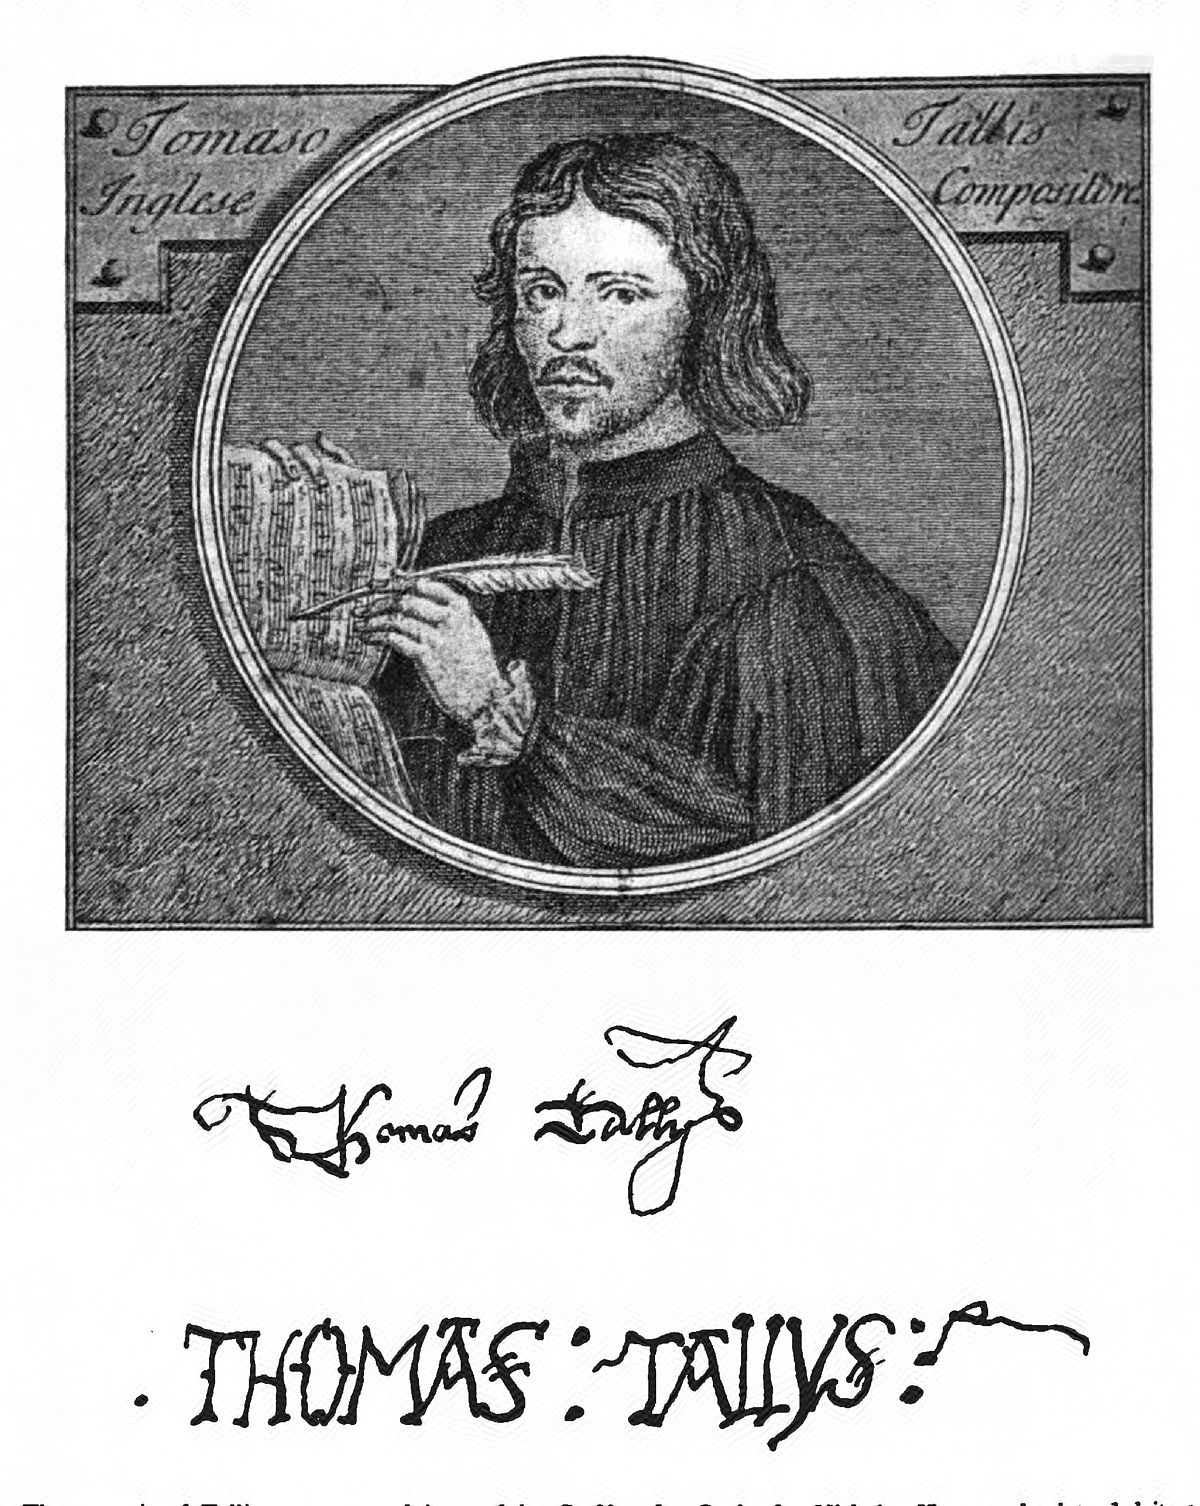 Tomaso Tallis
Inglese Compositore
Thomas Tallys
. THOMAS : TALLYS :